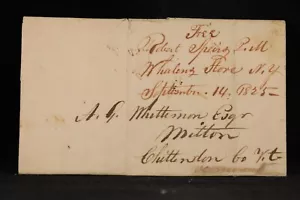 Free
Robert Speirs P. M
Whalens Store N. Y
September 14. 1825
A. G. Whittemore Esqr
Milton
Chittenden Co Vt